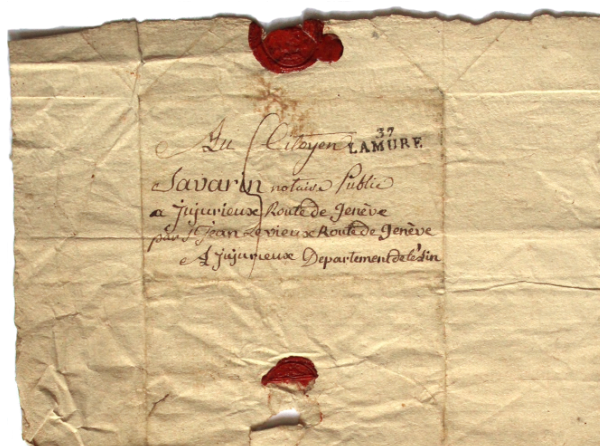 Au Citoyen
37
LAMURE
Savarin notaire Public
a jujurieux Route de Genève
par St jean Levieux Route de Genève
A jujurieux Departement de l'ain